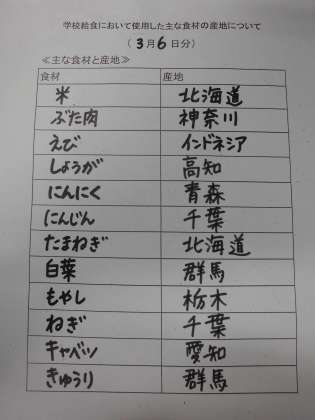 学校給食において使用した主な食材の産地について
（ 3月6日分）
≪主な食材と産地≫
食材 産地
米 北海道
ぶた肉 神奈川
えび インドネシア
しょうが 高知
にんにく 青森
にんじん 千葉
たまねぎ 北海道
白菜 群馬
もやし 栃木
ねぎ 千葉
キャベツ 愛知
きゅうり 群馬